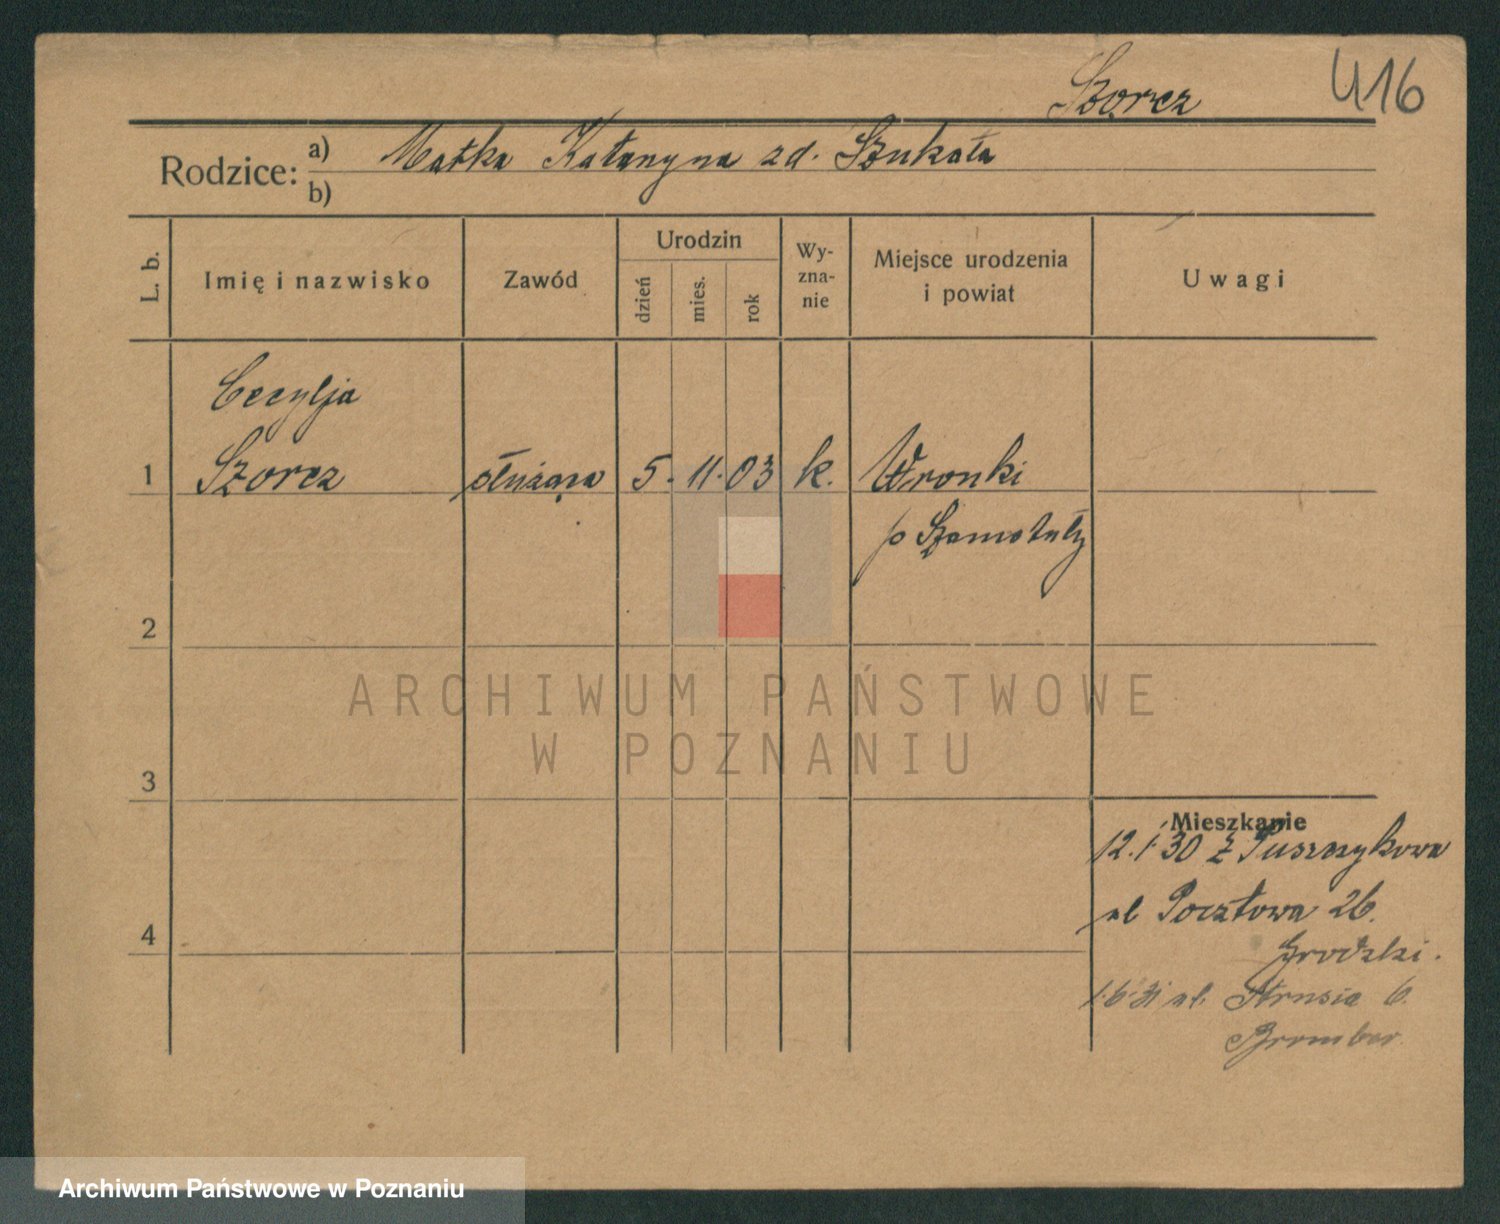 Szorcz
416
Rodzice: a) Matka Katarzyna zd. Szukała
b)
L. b.
Imię i nazwisko
Zawód
Urodzin
dzień
mies.
rok
Wy-
zna-
nie
Miejsce urodzenia
i powiat
Uwagi
Cecylja
1 Szorcz służąca 5. 11. 03 k. Wronki
p Szamotuły
2
3
4
Mieszkanie
12.1 30 z Puszczykowa
ul Pocztowa 26.
Grodzki.
1.6.31 ul. Strusia 6.
Brombor
ARCHIWUM PAŃSTWOWE
W POZNANIU
Archiwum Państwowe w Poznaniu